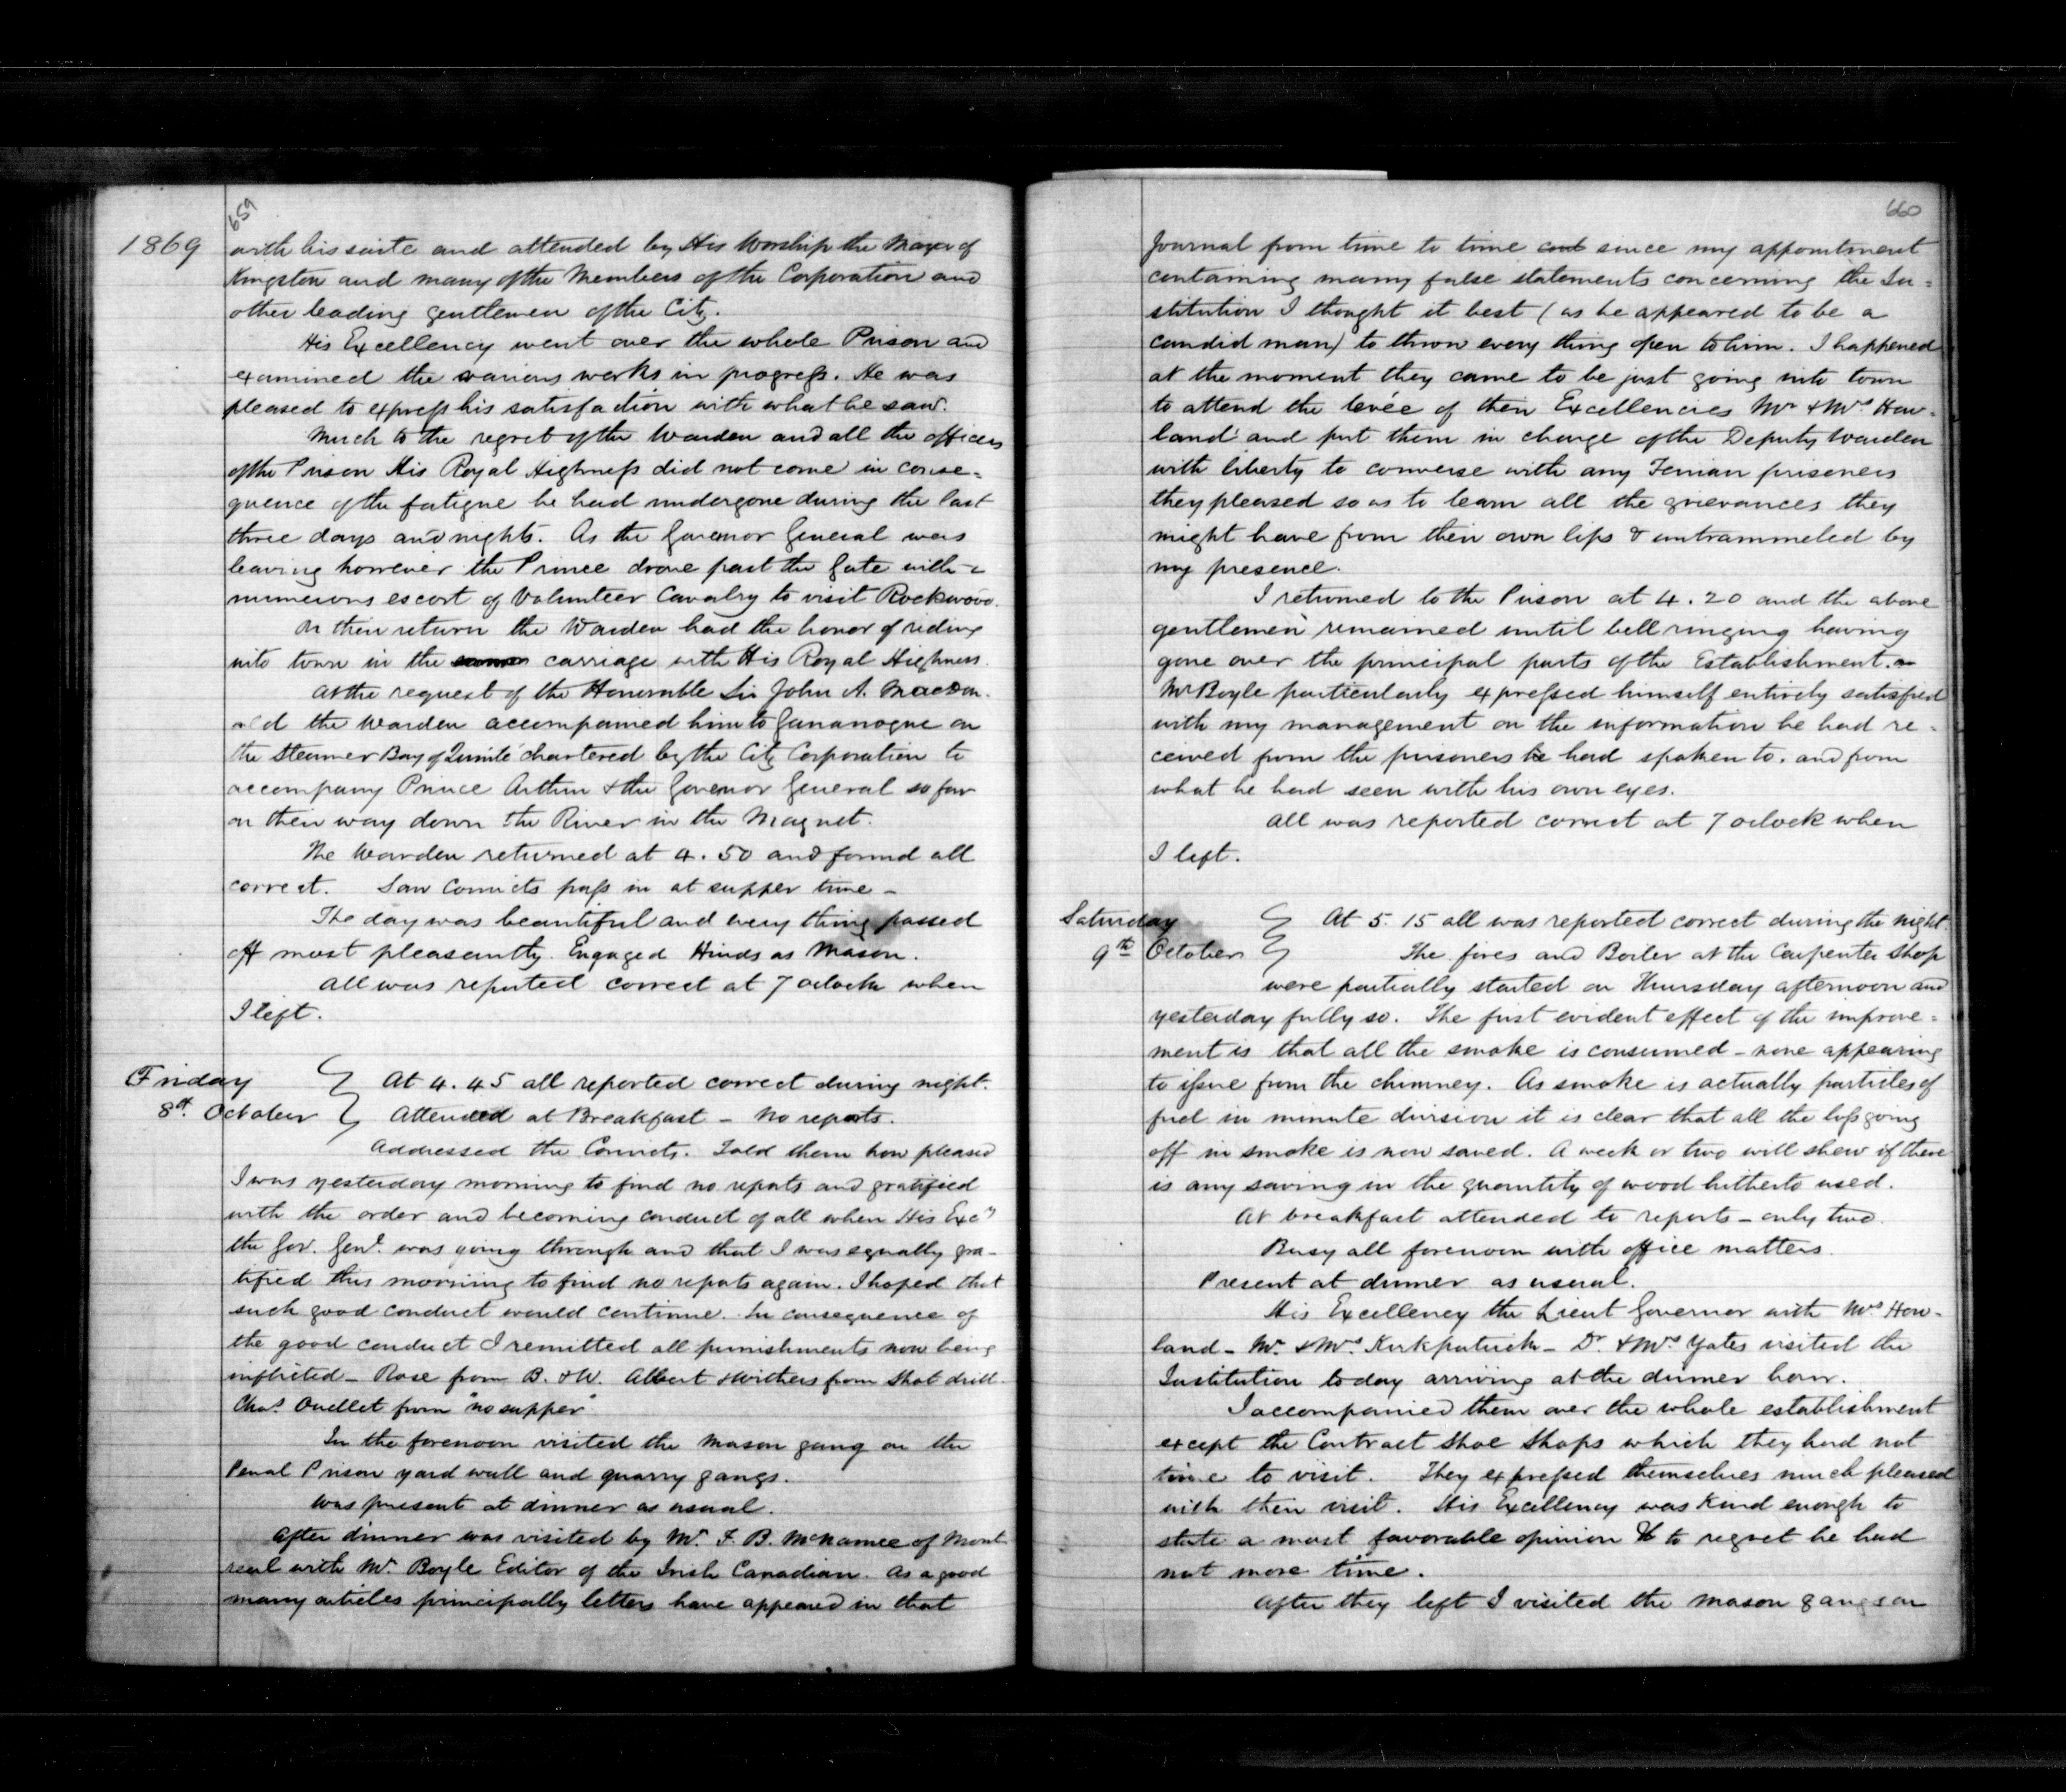 659
1869
with his suite and attended by His Worship the Mayor of
Kingston and many of the Members of the Corporation and
other leading gentlemen of the City.
His Excellency went over the whole Prison and
examined the various works in progress. He was
pleased to express his satisfaction with what he saw.
Much to the regret of the Warden and all the officers
of the Prison His Royal Highness did not come in conse=
quence of the fatigue he had undergone during the last
three days and nights. As the Governor General was
leaving however the Prince drove past the Gate with a
numerous escort of Volunteer Cavalry to visit Rockwood.
On their return the Warden had the honor of riding
into town in the carriage with His Royal Highness.
At the request of the Honorable Sir John A. Macdon-
ald the Warden accompanied him to Gananoque on
the Steamer Bay of Quinté chartered by the City Corporation to
accompany Prince Arthur & the Governor General so far
on their way down the River in the Magnet.
The Warden returned at 4.50 and found all
correct. Saw Convicts pass in at supper time –
The day was beautiful and every thing passed
off most pleasantly. Engaged Hinds as Mason.
All was reported correct at 7 oclock when
I left.
Friday At 4.45 all reported correct during night.
8th October Attended at Breakfast – No reports.
Addressed the Convicts. Told them how pleased
I was yesterday morning to find no reports and gratified
with the order and becoming conduct of all when His Excy
the Gov. Genl. was going through and that I was equally gra-
tified this morning to find no reports again. I hoped that
such good conduct would continue. In consequence of
the good conduct I remitted all punishments now being
inflicted – Rose from B. & W. Albert & Withers from Shot drill.
Chas. Ouellet from "no supper".
In the forenoon visited the Mason gang on the
Penal Prison yard wall and quarry gangs.
Was present at dinner as usual.
After dinner was visited by Mr. F. B. McNamee of Mont-
real with Mr. Boyle Editor of the Irish Canadian. As a good
many articles principally letters have appeared in that
660
Journal from time to time since my appointment
containing many false statements concerning the In=
stitution I thought it best (as he appeared to be a
candid man) to throw every thing open to him. I happened
at the moment they came to be just going into town
to attend the levée of their Excellencies Mr & Mrs How-
land and put them in charge of the Deputy Warden
with liberty to converse with any Fenian prisoners
they pleased so as to learn all the grievances they
might have from their own lips & untrammeled by
my presence.
I returned to the Prison at 4.20 and the above
gentlemen remained until bell ringing having
gone over the principal parts of the Establishment.
Mr Boyle particularly expressed himself entirely satisfied
with my management on the information he had re-
ceived from the prisoners he had spoken to. and from
what he had seen with his own eyes.
All was reported correct at 7 oclock when
I left.
Saturday At 5.15 all was reported correct during the night.
9th October The fires and Boiler at the Carpenter Shop
were partially started on Thursday afternoon and
yesterday fully so. The first evident effect of the improve=
ment is that all the smoke is consumed – none appearing
to issue from the chimney. As smoke is actually particles of
fuel in minute division it is clear that all the loss going
off in smoke is now saved. A week or two will shew if there
is any saving in the quantity of wood hitherto used.
At breakfast attended to reports – only two.
Busy all forenoon with office matters.
Present at dinner as usual.
His Excellency the Lieut Governor with Mrs How-
land – Mr. & Mrs. Kirkpatrick – Dr. & Mrs Yates visited the
Institution today arriving at the dinner hour.
I accompanied them over the whole establishment
except the Contract Shoe Shops which they had not
time to visit. They expressed themselves much pleased
with their visit. His Excellency was kind enough to
state a most favorable opinion & to regret he had
not more time.
After they left I visited the mason gangs on